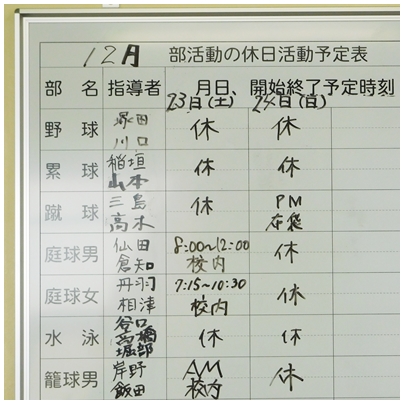 12月 部活動の休日活動予定表
部 名 指導者 月日、開始終了予定時刻
23日(土) 24日(日)
野 球 塚田 川口 休 休
累 球 稲垣 山本 休 休
蹴 球 三島 高木 休 PM 在袋
庭球男 仙田 倉知 8:00~12:00 校内 休
庭球女 丹羽 相津 7:15~10:30 校内 休
水 泳 谷口 高橋 堀部 休 休
籠球男 岸野 飯田 AM 校内 休